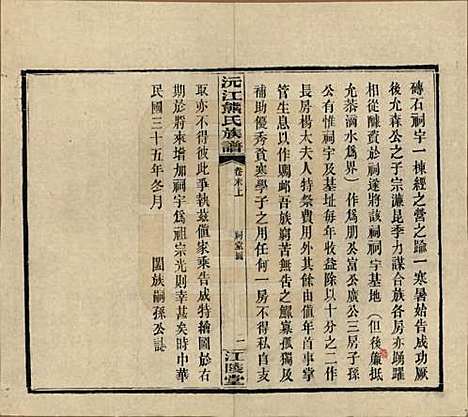 磚石祠宇一棟經之營之踰一寒暑始告成功厥
後允森公之子宗濂昆季力謀合族各房亦踴躍
相從醵資於祠遂將該祠祠宇基地(但後簷抵
允恭滴水為界)作為朋公富公廣公三房子孫
公有惟祠宇及基址每年收益除以十分之二作
長房楊太夫人特祭費用外餘數概歸值年首事掌
管生息以作賙邮吾族窮苦無告之鰥寡孤獨及
補助優秀貧寒學子之用任何一房不得私自支
沅江熊氏族譜
卷末上
祠堂圖
二
江陵堂
取亦不得彼此爭執茲值家乘告成特繪圖於右
期於將來增加祠宇為祖宗光則幸甚矣時中華
民國三十五年冬月
闔族嗣孫公誌